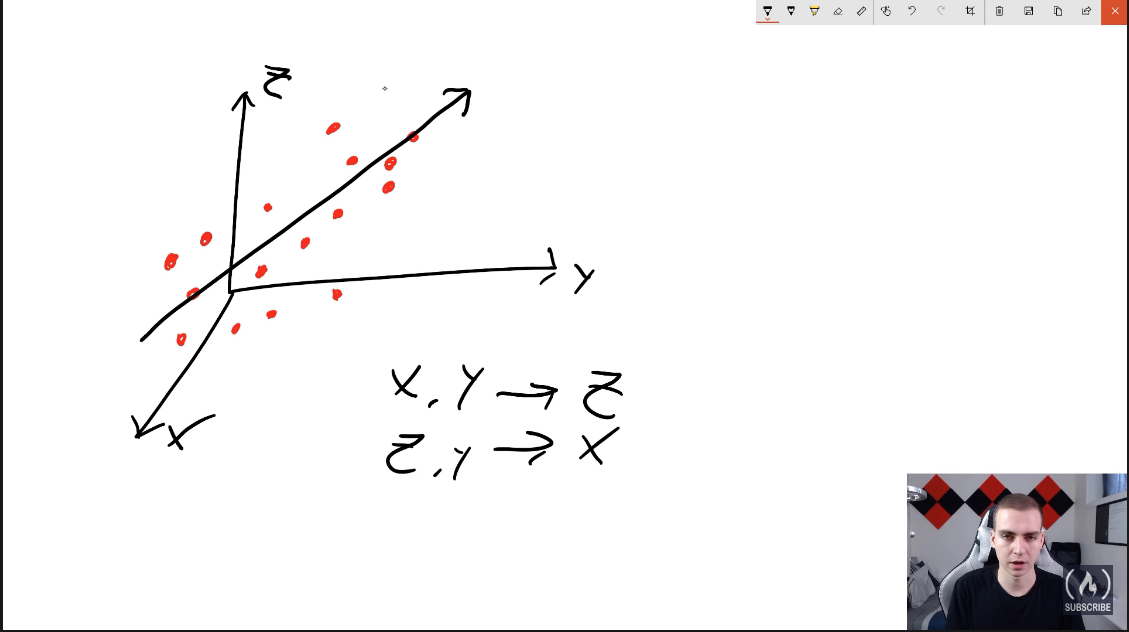 Z
Y
X
X, Y → Z
Z, Y → X
SUBSCRIBE